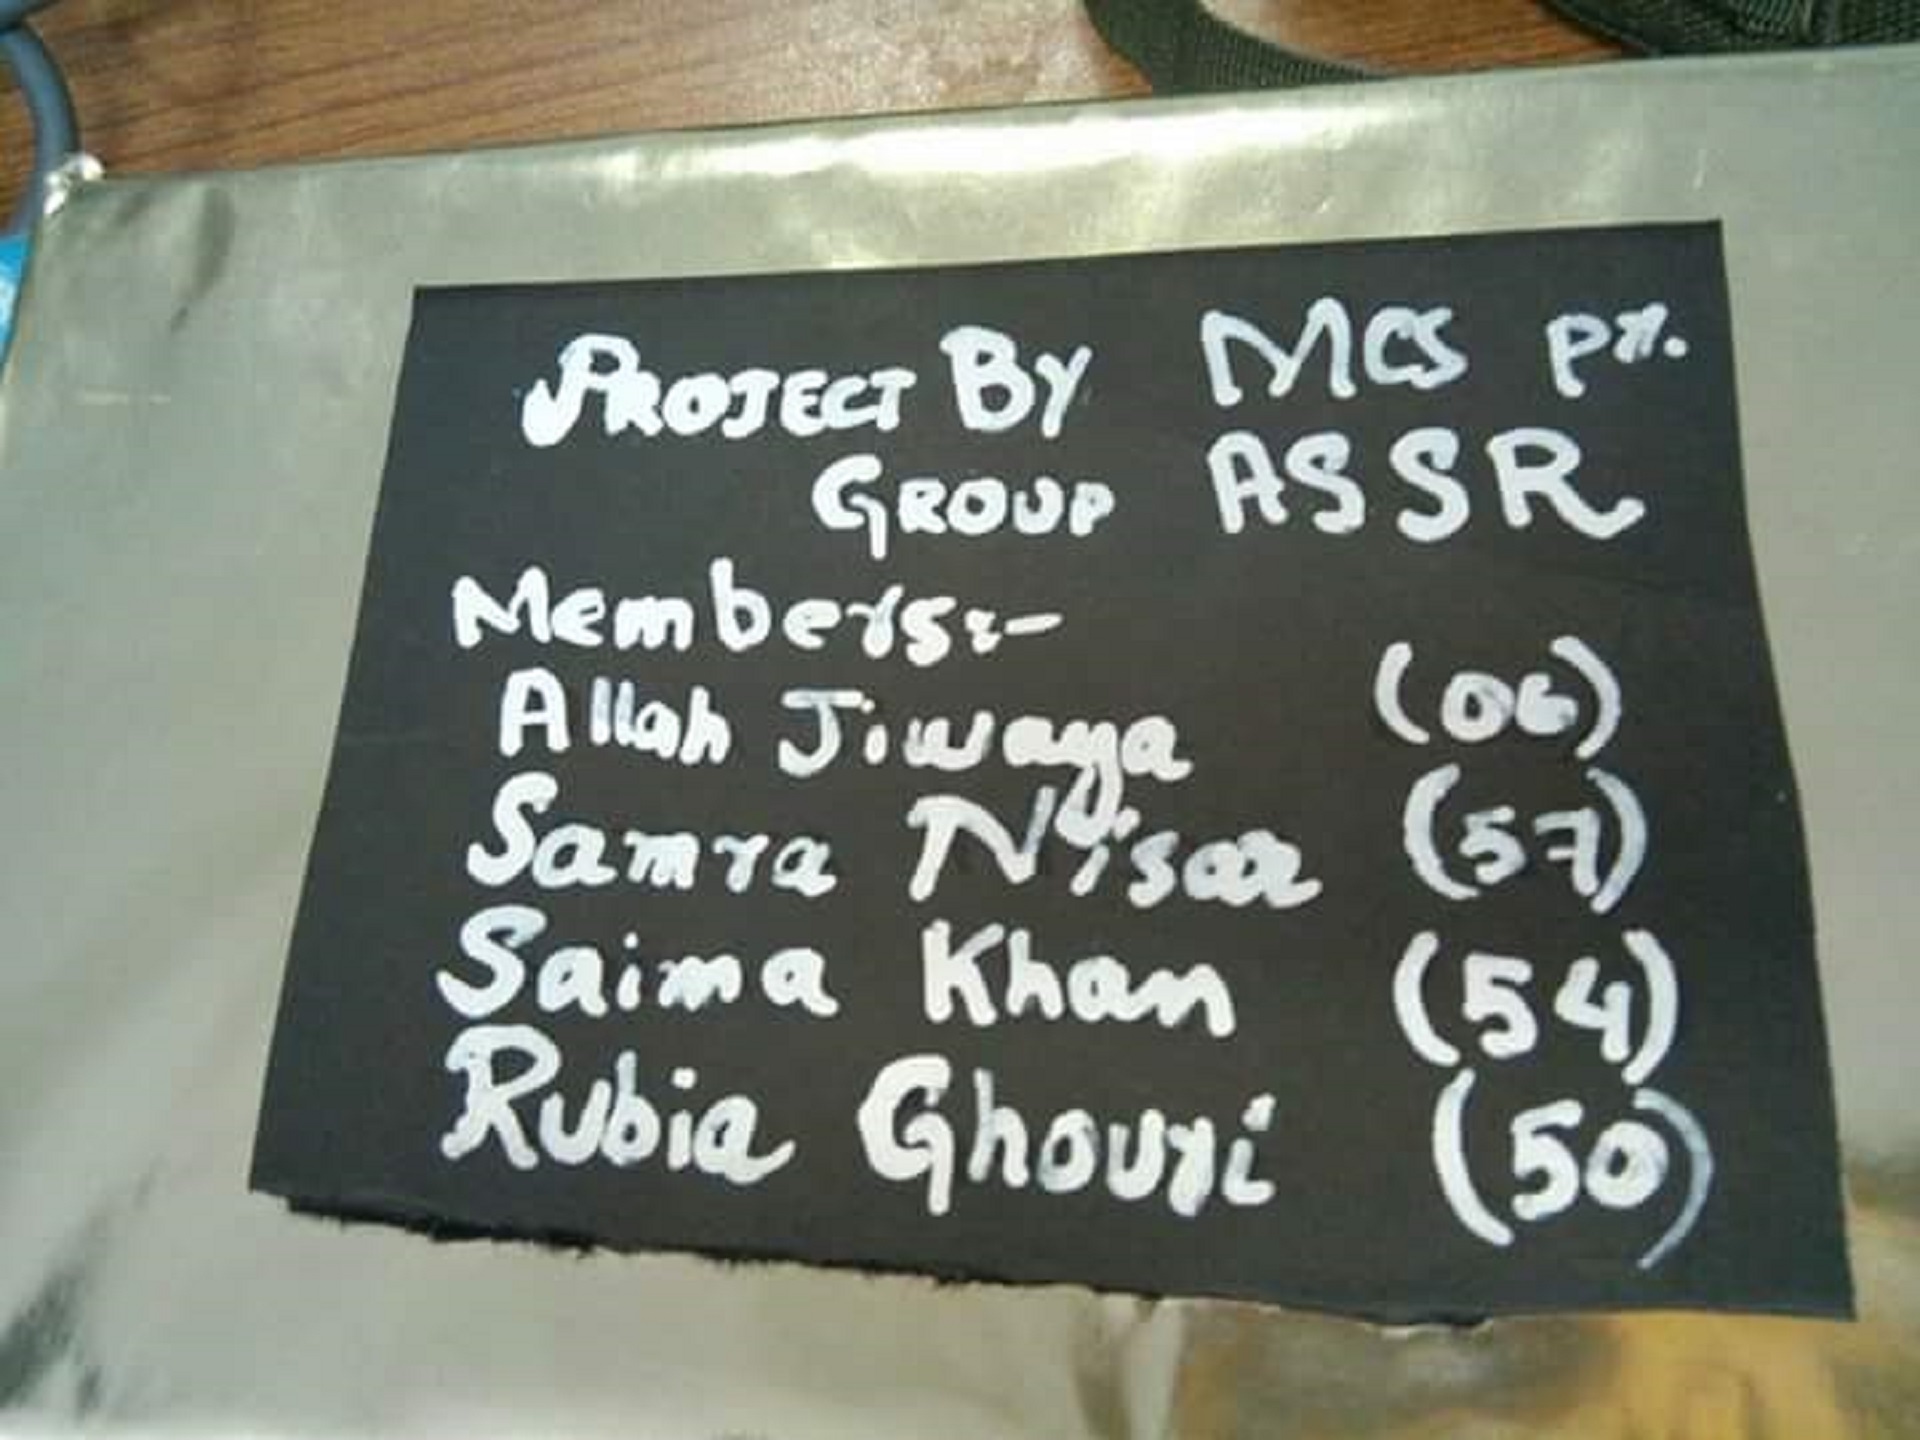 PROJECT By MCS
GROUP ASSR
Members:-
Allah Jiwaya (06)
Samra Nisar (57)
Saima Khan (54)
Rubia Ghouri (50)